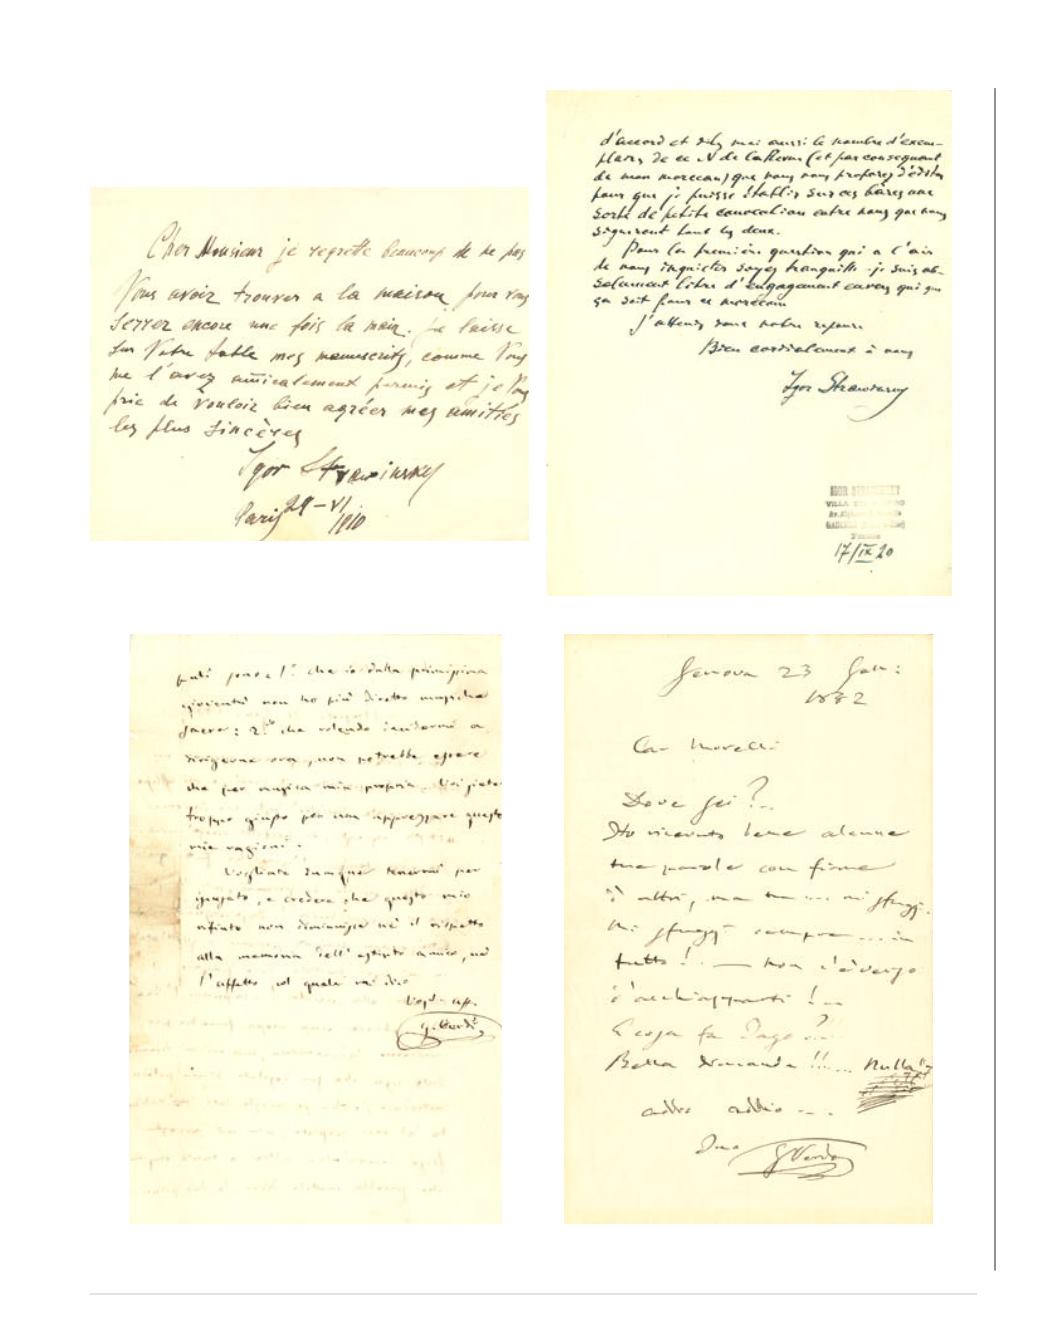 Cher Monsieur je regrette beaucoup de ne pas
Vous avoir trouver a la maison pour vous
serrer encore une fois la main. Je laisse
sur Votre table mes manuscrits, comme Vous
me l'avez amicalement permis et je Vous
prie de vouloir bien agréer mes amitiés
les plus sincères
Igor Strawinsky
Paris 29-VI
1910
d'accord et dites moi aussi le nombre d'exem-
plaires de ce N de la Revue (et par consequant
de mon morceau) que vous vous proposez d'éditer
pour que je puisse établir sur ces bases une
sorte de petite convocation entre nous que nous
signeront tous les deux.
Pour la première question qui a l'air
de vous inquieter soyez tranquille - je suis ab-
solument libre d'engagement envers qui que
ça soit pour ce morceau
J'attends donc votre reponse
Bien cordialement à vous
Igor Strawinsky
IGOR STRAWINSKY
VILLA
France
17/IX 20
che io dalla primissima
gioventù non ho più diretto musiche
sacre: 2.do che volendo indurmi a
dirigerne ora, non potrebbe essere
che per musica mia propria. Voi siete
troppo giusto per non apprezzare queste
mie ragioni.
Vogliate dunque tenermi per
iscusato, e credere che questo mio
rifiuto non diminuisce nè il rispetto
alla memoria dell'estinto amico, nè
l'affetto col quale mi dico
Vostro aff.
G. Verdi
Genova 23 Gen:
1882
Car Morelli
Dove sei?..
Ho ricevuto bene alcune
tue parole con firme
d'altri, ma tu.... mi sfuggi.
Mi sfuggi sempre.... in
tutto! — Non c'è verso
d'acchiapparti!...
E cosa fa Jago?...
Bella domanda!!.... Nulla!!
addio addio ....
Tuo G Verdi